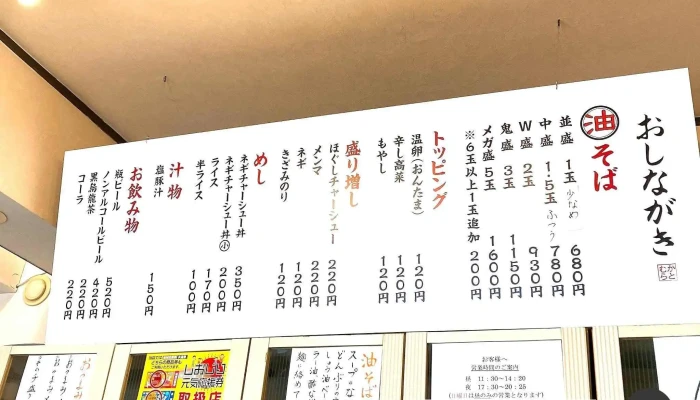 おしながき
かとむら
油そば
並盛 1玉 少なめ 680円
中盛 1.5玉 ふつう 780円
W盛 2玉 930円
鬼盛 3玉 1150円
メガ盛 5玉 1600円
※6玉以上1玉追加 200円
トッピング
温卵(おんたま) 120円
辛し高菜 120円
もやし 120円
盛り増し
ほぐしチャーシュー 220円
メンマ 220円
ネギ 120円
きざみのり 120円
めし
ネギチャーシュー丼 350円
ネギチャーシュー丼小 200円
ライス 170円
半ライス 100円
汁物
塩豚汁 150円
お飲み物
瓶ビール 520円
ノンアルコールビール 420円
黒烏龍茶 220円
コーラ 220円
お客様へ
営業時間のご案内
昼 11:30~14:20
夜 17:30~20:25
(日曜日は昼のみの営業となります)
油そば
スープのな
どんぶり
しょう油ベー
ラー油、酢な
麺に絡めて
元気回復券
取扱店